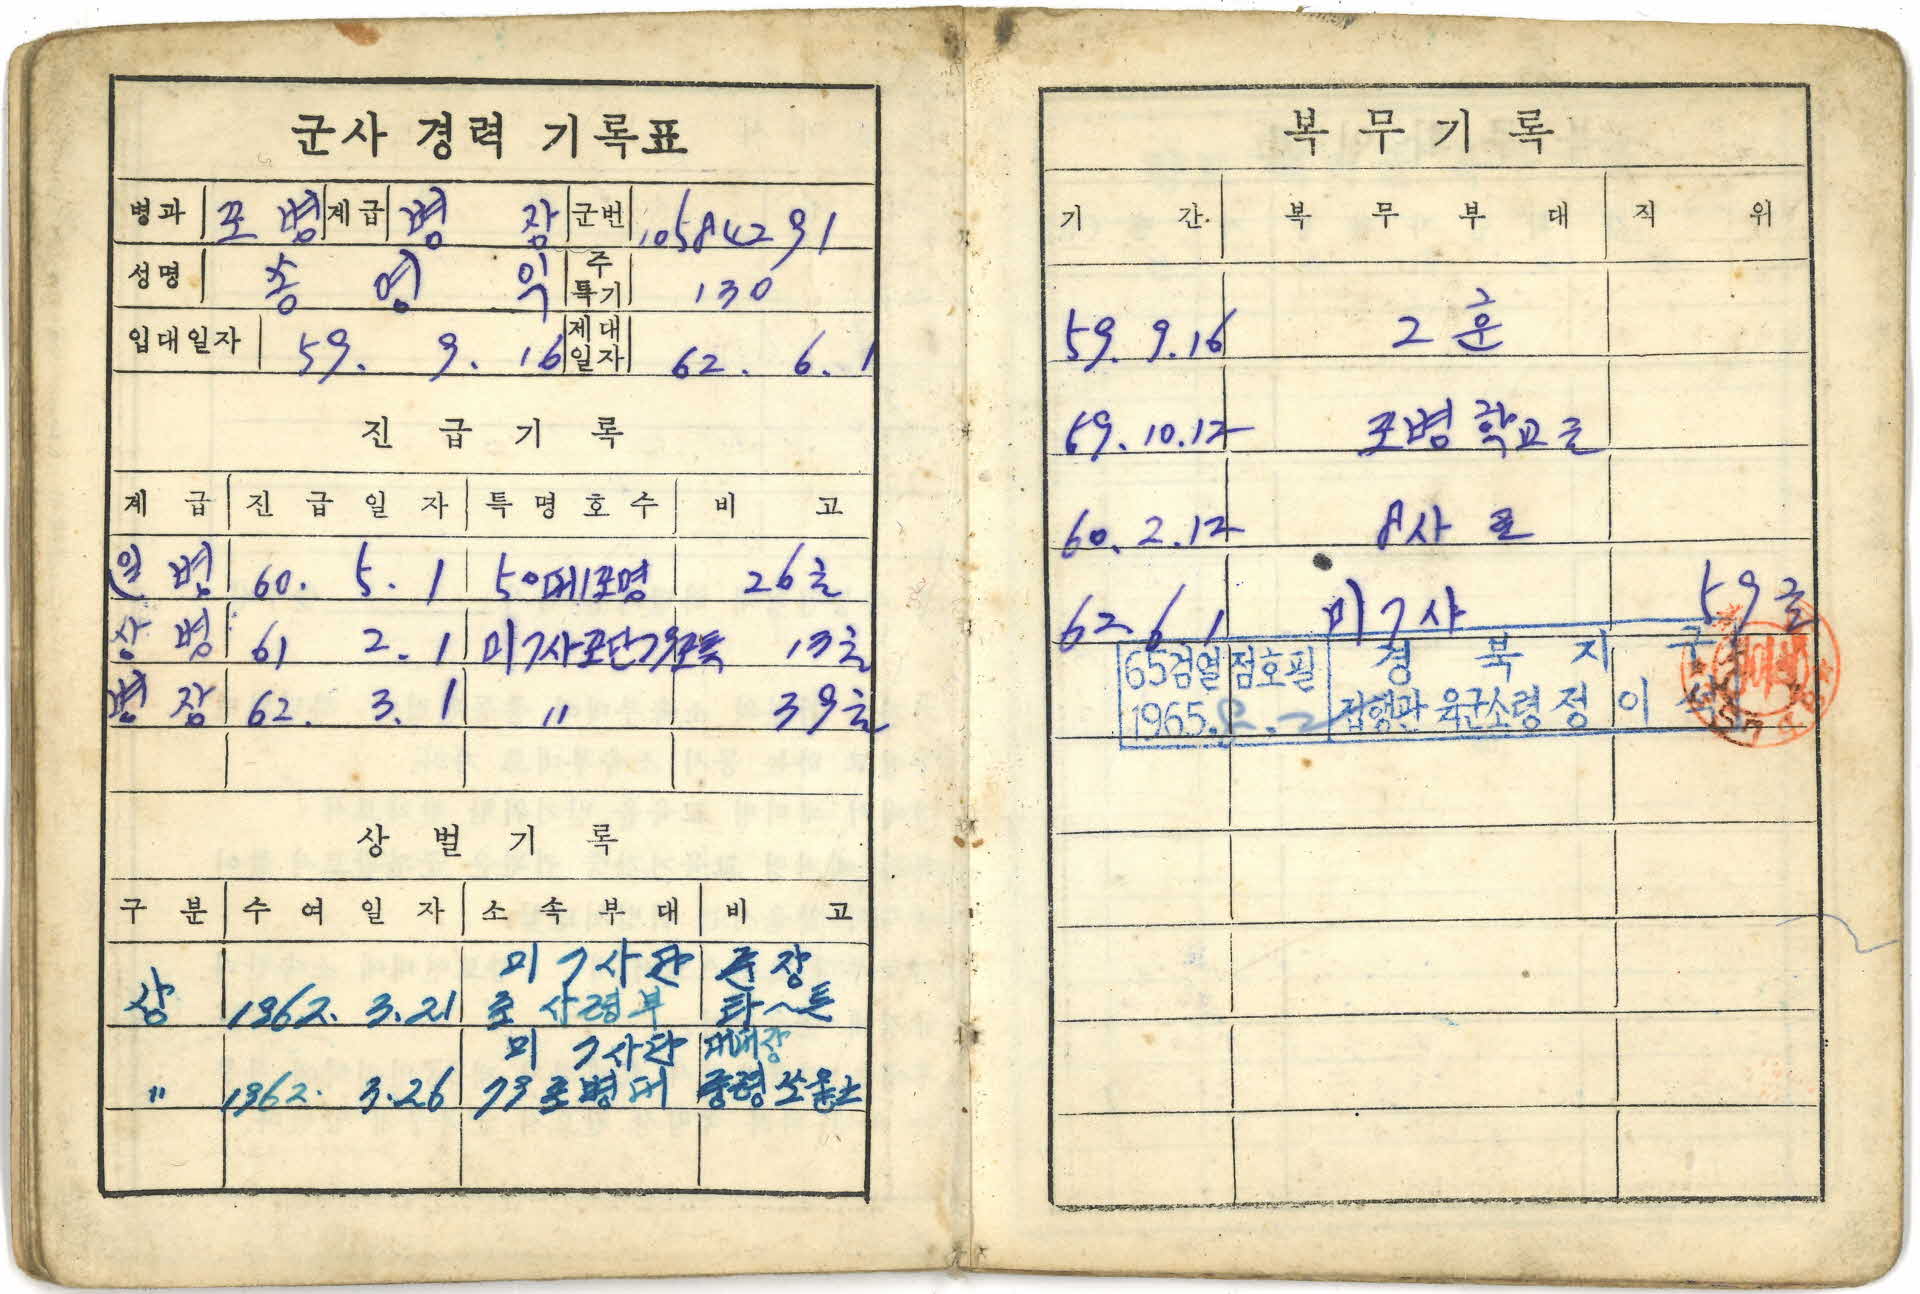 군사 경력 기록표
병과 포병 계급 병장 군번 10584291
성명 송영익 주특기 130
입대일자 59. 9. 16 제대일자 62. 6. 1
진급기록
계급 진급일자 특명호수 비고
일병 60. 5. 1 26호
상병 61 2. 1 13호
병장 62. 3. 1 〃 39호
상벌기록
구분 수여일자 소속부대 비고
상 1962. 3. 21 미7사단 포사령부
〃 1962. 3. 26 미7사단 73포병대 대대장 중령
복무기록
기간 복무부대 직위
59. 9. 16 2훈
59. 10. 12 포병학교
60. 2. 12 8사
62. 6. 1 미7사
65검열점호필 경북지구
1965. 집행관 육군소령 정이